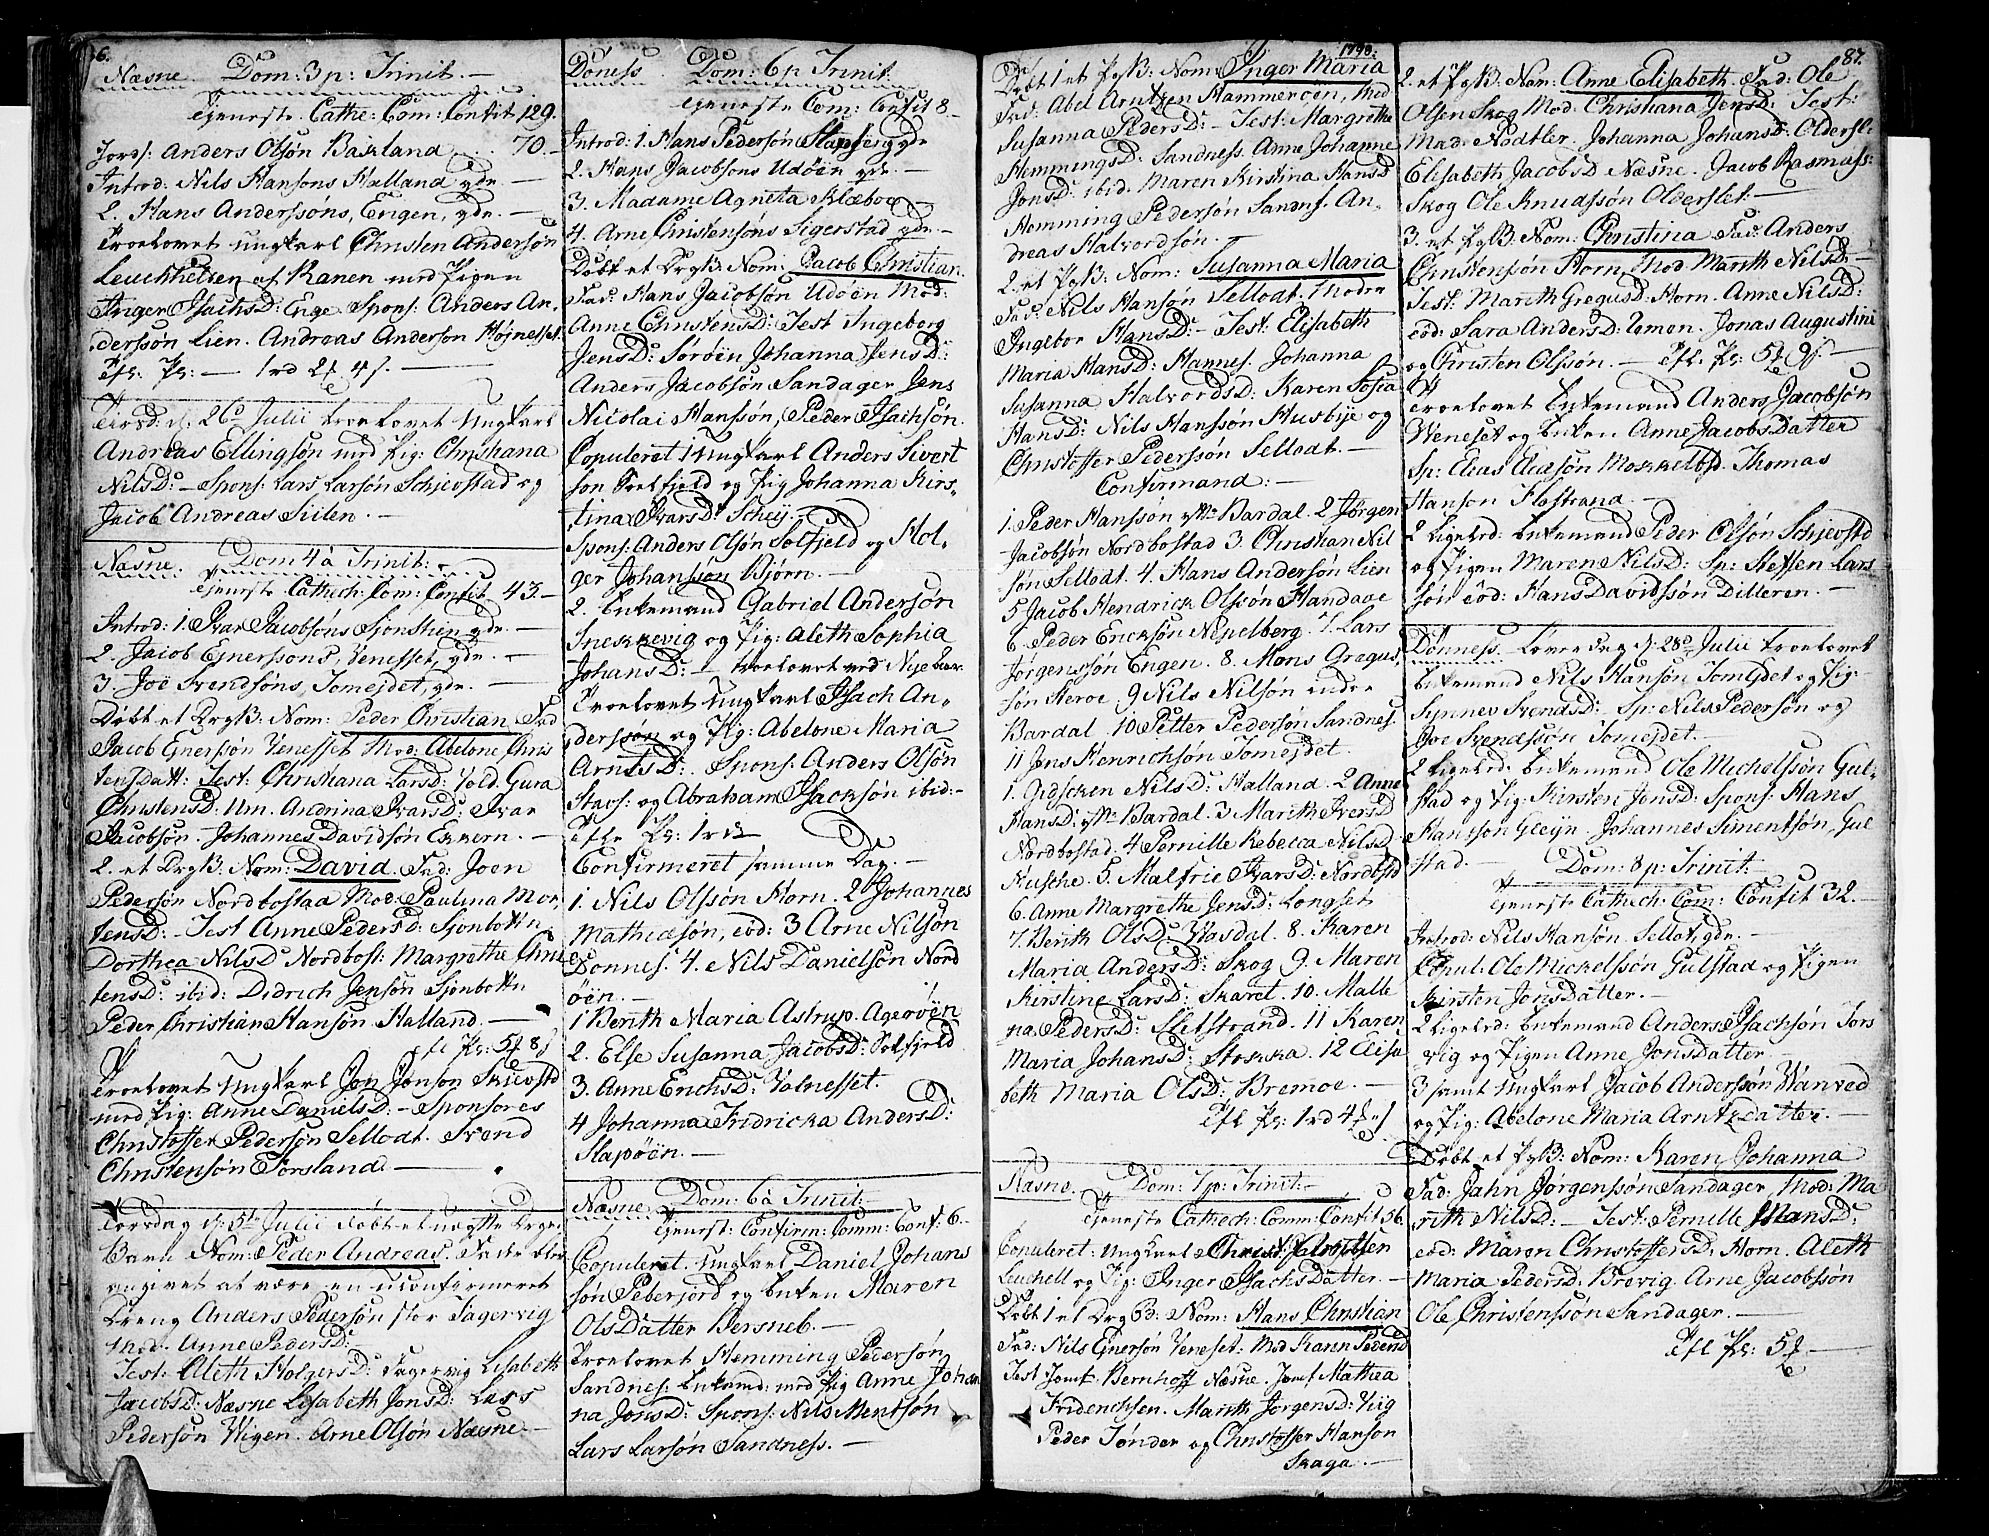 6.
Næsne. Dom: 3 p: Trinit. —
tjeneste Cathe: Com: Confit 129.
Jords: Anders Olsøn Baxland .. 70. —
Introd: Nils Hansons Halland qde. —
2. Hans Anderssøns, Engen, qde. —
Troelovet ungkarl Christen Andersøn
af Ranen med Pigen
Inger Isachsd: Enge Spons: Anders An-
derssøn Lien. Andreas Anderson Højnesset.
Ofl. Pr: — 1rd 2f 4s. —
Tirsd: d. 26d Julii troelovet ungkarl
Andreas Ellingsøn med Pig: Christiana
NilsD: — Spons: Lars Larsøn Schjevstad og
Jacob Andreas —
Næsne. Dom 4 à Trinit: —
tjeneste Cathech: Com: Confit 43. —
Introd: 1. Ivar Jacobsøns Sjonshien qde. —
2. Jacob Ejnerssons, Venesset, qde. —
3. Joe Svendsøns, Tomejdet, qde. —
Døbt et DrgB: Nom: Peder Christian Fad
Jacob Ejnerssøn Venesset Mod: Abelone Chris
tensDatt: Test: Christiana LarsD: Gura
ChristensD: Um. Andrina IvarsD: Ivar
Jacobsøn. Johannes Davidsøn —
2. et DrgB: Nom: David. Fad: Joen
Pedersøn Nordbostad Mod: Paulina Mor-
tensD: — Test Anne PedersD: Sjonbotten
Dorthea NilsD Nordbost: Margrethe Chri
tensD: ibid: Didrich Jensøn Sjonbottn
Peder Christian Hansøn Halland. —
Ofl Pr: 5f 8s
Troelovet ungkarl Jon Jonson Skjevstd
med Pig: Anne DanielsD: — Sponsores
Christoffer Pedersøn Sellodt. Svend
Christensøn Forsland. —
Torsdag d: 5te Julii døbt et uægte Drge
Barn Nom: Peder Andreas. Fader blev
angivet at være en uconfirmeret
Dreng Anders Pedersøn stor Fagervig
Mod. Anne PedersD:
Test: Aleth HolgersD: Fagervig Lisabeth
JacobsD: Næsne Lisabeth JonsD: Lars
Pedersøn Wigen. Arne Olsøn Næsne. —
Døness Dom: 6 p Trinit.
tjeneste Com: Confit 8 —
Introd: 1. Hans Pedersøn qde
2. Hans Jacobsons Udøen qde. —
3. Madame Agneta Klæboe —
4. Arne Christensøns Sigerstad qde. —
Døbt et DrgB: Nom: Jacob Christian.
Fad: Hans Jacobsøn Udøen Mod:
Anne ChristensD: Test Ingeborg
JensD: Sørøen Johanna JensD:
Anders Jacobsøn Sandager Jens
Nicolai Hanssøn, Peder Isachsøn.
Copuleret 1 ungkarl Anders Sivert
søn Solfjeld og Pig Johanna Kirs-
tina IvarsD: Schey. —
Spons: Anders Olsøn Solfjeld og Hol-
ger Johanssøn Bjørn. —
2. Enkemand Gabriel Andersøn
Sneskevig og Pig: Aleth Sophia
JohansD: — troelovet ved
Troelovet ungkarl Isach An-
derssøn og Pig: Abelone Maria
ArntsD: Spons: Anders Olsøn
Stavs: og Abraham Isacksøn ibid: —
Ofte Pr: 1rd
Confirmeret samme Dag. —
1. Nils Olssøn Horn. 2 Johannes
Mathiesøn, eod: 3 Arne Nilsøn
Dønnes. 4. Nils Danielsøn Nord
øen. —
1 Berith Maria Astrup. Agerøen
2. Else Susanna JacobsD: Solfjeld
3. Anne ErichsD: Valnesset.
4 Johanna Fridricka AndersD:
Slapøen. —
Næsne Dom: 6 à Trinit: —
tjenest: Confirm: Comm: Conf. 6 —
Copuleret. ungkarl Daniel Johans
søn og Enken Maren
OlsDatter Bersneb. —
Troelovet Hemming Pedersøn
Sandnes: Enkemd: med Pig Anne Johan
na JonsD: Spons: Nils Mentsøn
Lars Larsøn Sandness. —
1798.
Døbt 1 et PgB: Nom: Inger Maria
Fad: Abel Arntzen Hammerøen, Mod
Susanna PedersD: — Test: Margrethe
HemmingsD: Sandness. Anne Johanne
JonsD: ibid. Maren Kirstina HansD
Hemming Pedersøn Sandns. An-
dreas Halvordsøn. —
2. et PgB: Nom: Susanna Maria
Fad: Nils Hansøn Sellodt. Modre
Ingebor HansD: — Test: Elisabeth
Maria HansD: Hannes. Johanna
Susanna HalvordsD: Karen Sofia
HansD: Nils Hanssøn Husbye og
Christoffer Pederssøn Sellodt. —
Confirmand: —
1. Peder Hanssøn Bardal. 2 Jørgen
Jacobsøn Nordbostad 3. Christian Nil
søn Sellodt. 4. Hans Andersøn Lien
5 Jacob Hendrick Olssøn Handaae
6. Peder Ericksøn Nepelberg. 7. Lars
Jørgenssøn Engen. 8. Mons Gregus-
søn Herøe. 9 Nils Nilsøn indre
Bardal. 10 Petter Pedersøn Sandnes.
11 Jens Henrichsøn Tomejdet.
1. NilsD: Halland. 2 Anne
HansD: Bardal. 3 Marith IversD
Nordbostad. 4 Pernille Rebecca NilsD.
Husche. 5. Malfrie IvarsD: Nordbstd
6. Anne Margrethe JensD: Longset
7. Berith OlsD: Wasdal. 8. Karen
Maria AndersD: Skog 9. Maren
Kirstine LarsD: Skaret. 10. Malle
na PedersD: Sletstrand. 11 Karen
Maria JohansD: Stokka. 12 Elisa
beth Maria OlsD: Bremoe. —
Ofl Pr: 1rd 4f
Næsne. Dom: 7 p: Trinit: —
tjeneste Cathech: Comm: Confit 36.
Copuleret: ungkarl Christ:
Leuchell og Pig: Inger IsachsDatter. —
Døbt 1 et DrgB: Nom: Hans Christian
Fad: Nils Ejnersøn Veneset: Mod Karen PedersD
Test Jomf: Bernhoff Næsne. Jomf Mathea
Friderichsen. Marith JørgensD: Viig
Peder Tønder og Christoffer Hanson
Skaga. —
87.
2. et PgB: Nom: Anne Elisabeth. Fad: Ole
Olsen Skog Mod: Christiana JensD: Test:
Mad: Nodtler. Johanna JohansD: Oldersl:
Elisabeth JacobsD Næsne. Jacob Rasmuss:
Skog Ole Knudssøn Olderslet. —
3. et PgB: Nom: Christina Fad: Anders
Christensøn Horn, Mod Marith NilsD: —
Test: Marith GregusD: Horn. Anne NilsD:
eod: Sara AndersD: Zomen. Jonas Augustini
og Christen Olssøn. — Ofl. Pr: 5f 9s. —
Troelovet Enkemand Anders Jacobsøn
Weneset og Enken Anne JacobsDatter
Sp: Elias Eliasøn Thomas
Hanson Flostrand. —
2 Ligeled: Enkemand Peder Olsøn Schjevstd
og Pigen Maren NilsD: Sp: Steffen Lars
søn eod: Hans Davidssøn Dilleren. —
Dønness. Løverdag d: 28d Julii troelovet
Enkemand Nils Hansøn Tomejdet og Pig:
Synnev SvendsD: Sp: Nils Pedersøn og
Joe Svendssøn Tomejdet. —
2 Ligeled: Enkemand Ole Michelssøn Gul-
stad og Pig: Kirsten JonsD: Spons: Hans
Hansson Glejn. Johannes Simentsøn, Gul
stad. — Dom: 8 p: Trinit: —
tjeneste Cathech: Com: Confit 32. —
Introd: Nils Hansøn Sellot, qde. —
Copul: Ole Mickelssøn Gulstad og Pigen
Kirsten JonsDatter. —
2 Ligeled: Enkemand Anders Isachsøn Tors
vig og Pigen Anne JonsDatter. —
3 samt ungkarl Jacob Anderssøn Wanved
og Pig: Abelone Maria ArntzDatter. —
Døbt et PgB: Nom: Karen Johanna
Fad: Jahn Jørgenssøn Sandager, Mod: Ma
rith NilsD: — Test: Pernille HansD:
eod: Maren ChristoffersD: Horn. Aleth
Maria PedersD: Brevig. Arne Jacobssøn
Ole Christenssøn Sandager. —
Ofl Pr: 5f —